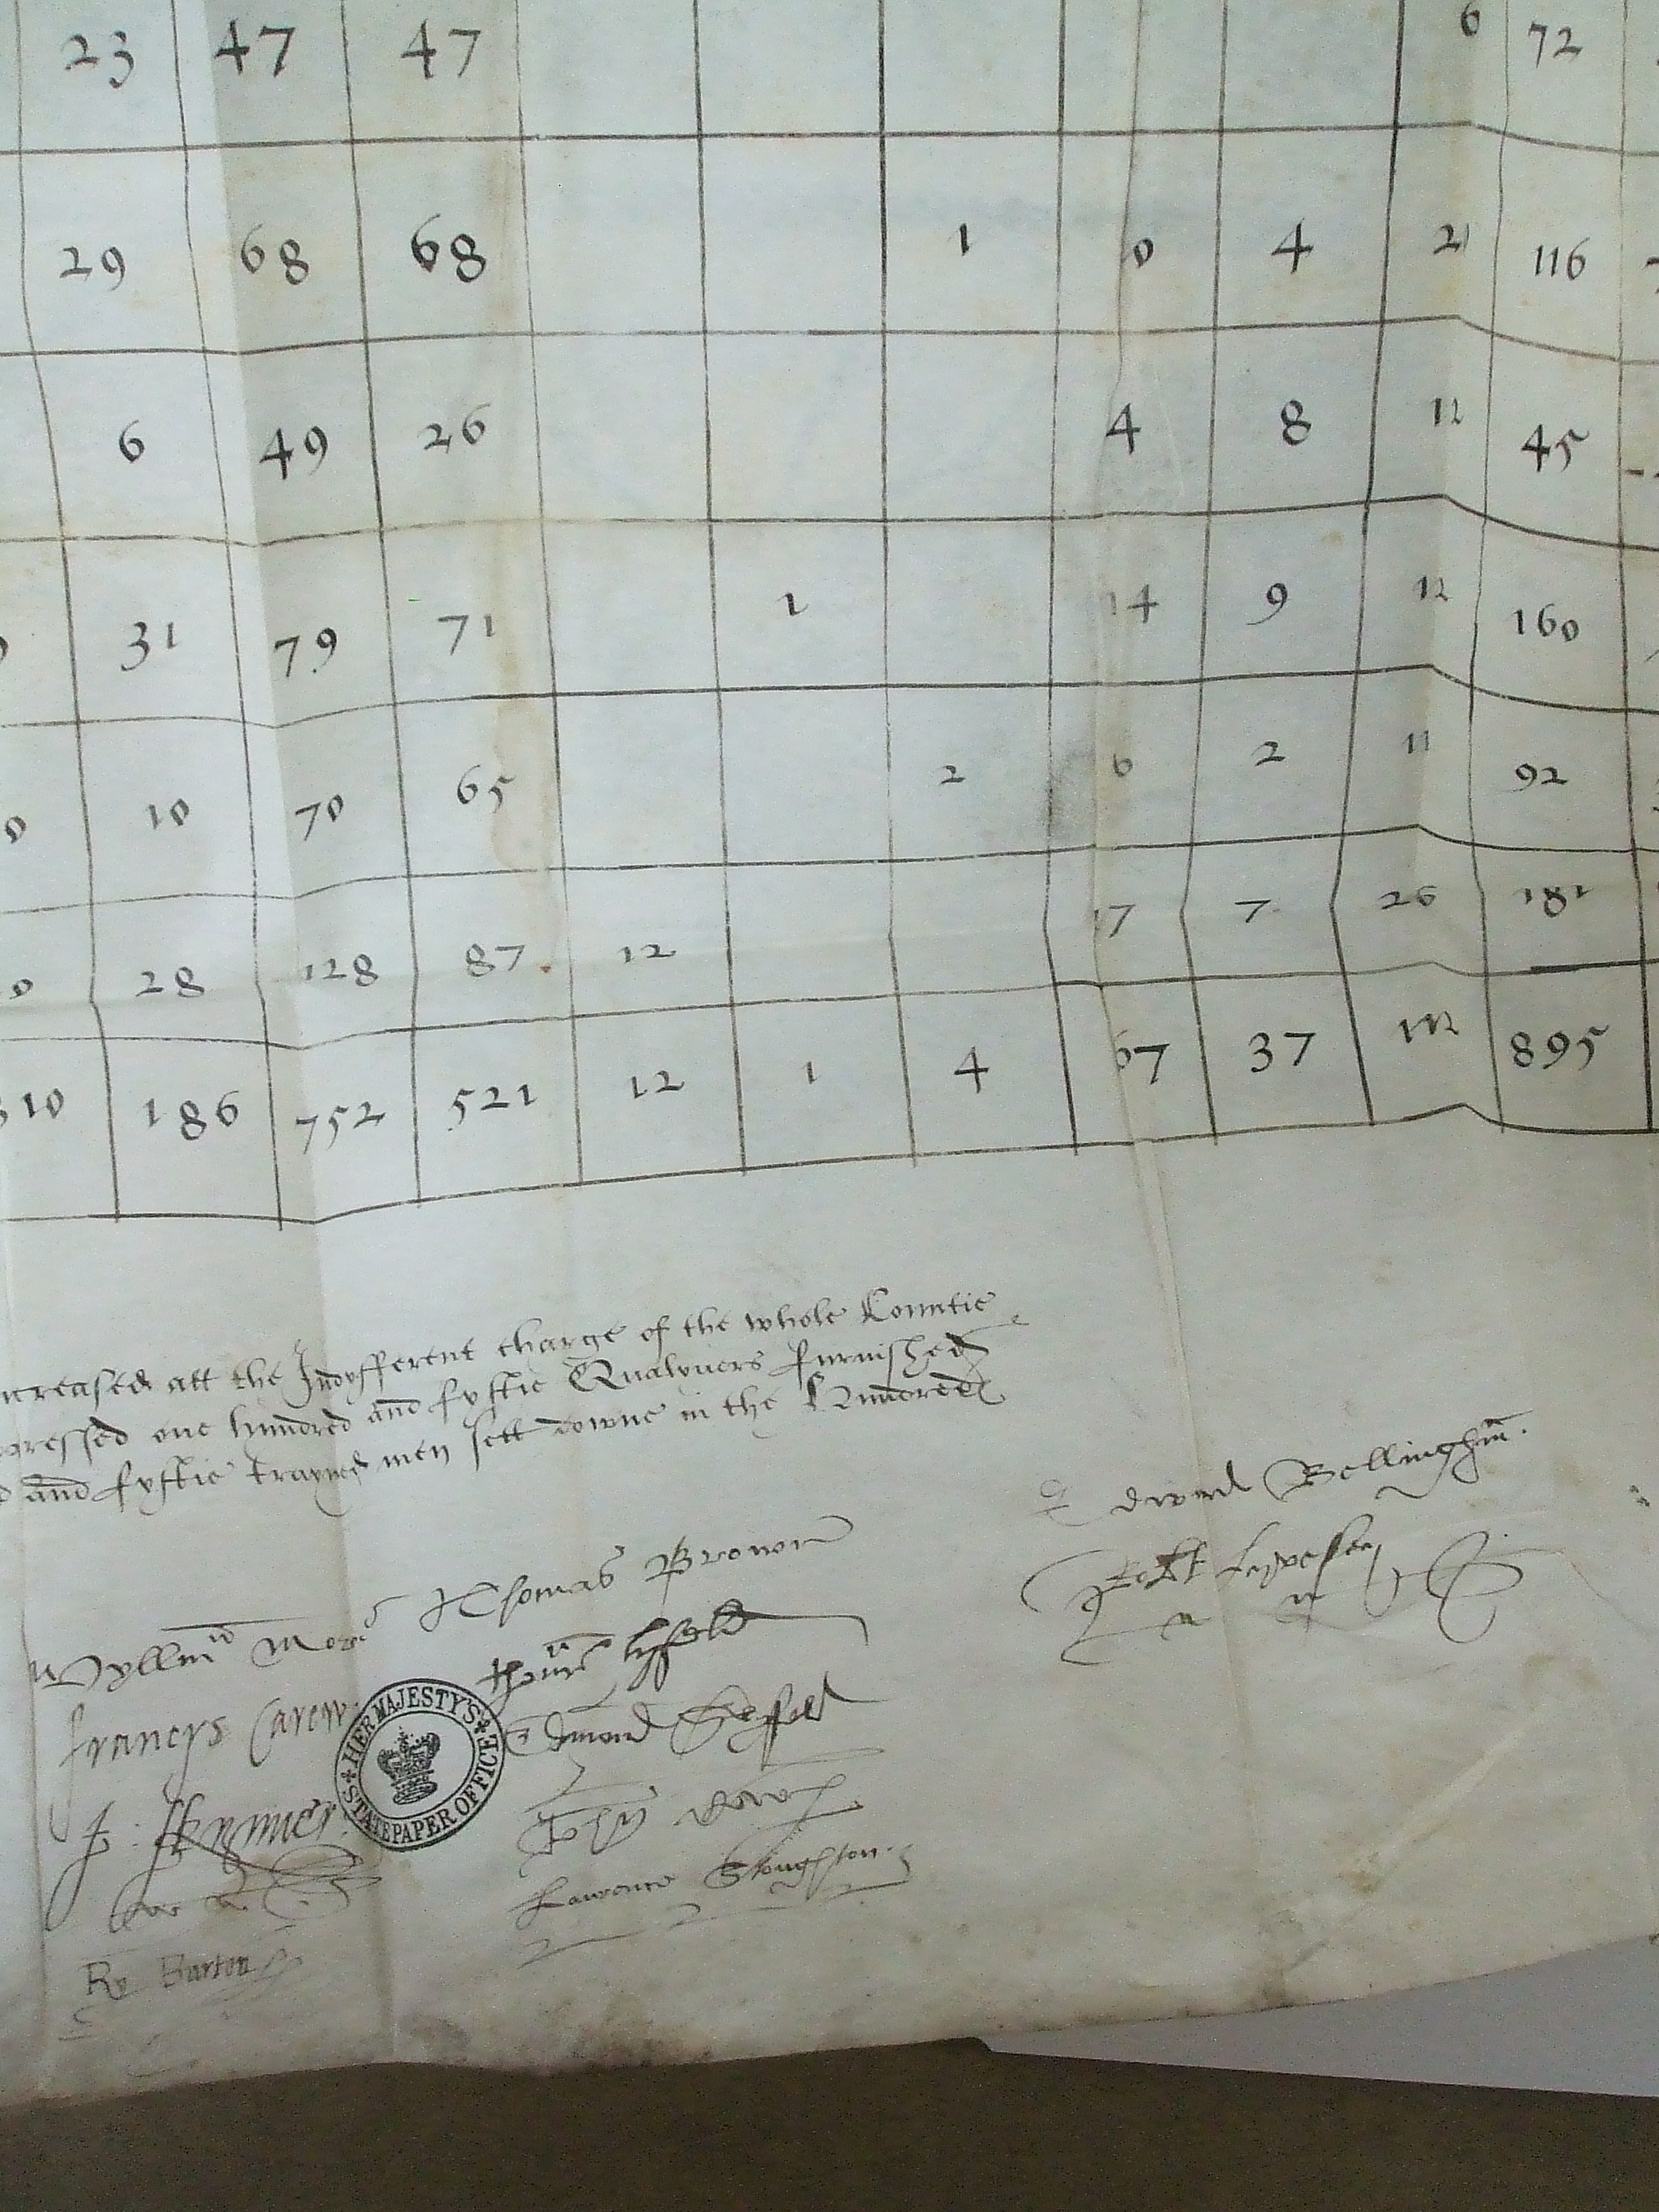 23 47 47 6 72
29 68 68 1 0 4 21 116
6 49 26 4 8 12 45
31 79 71 1 14 9 12 160
0 10 70 65 2 6 2 11 92
0 28 128 87 12 17 7 26 181
310 186 752 521 12 1 4 67 37 112 895
ncreased att the Indyfferent charge of the whole Countie
pressed one hundred and fyftie Qualyvers furnished
and fyftie trayned men sett downe in the Hundredes
Edward Bellingham.
Thomas Browne
Wyllm More
Thoms Lyfeld
Francys Carew
Edmond
HER MAJESTY'S STATE PAPER OFFICE
John
Lawrence Stoughton.
Ry Barton